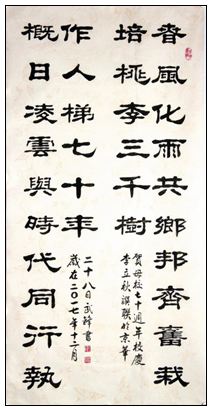 春風化雨共鄉邦齊奮栽
培桃李三千樹
賀母校七十週年校慶
李立秋撰聯於京華
概日凌雲與時代同行執
作人梯七十年
歲在二〇一七年十一月
二十八日武書